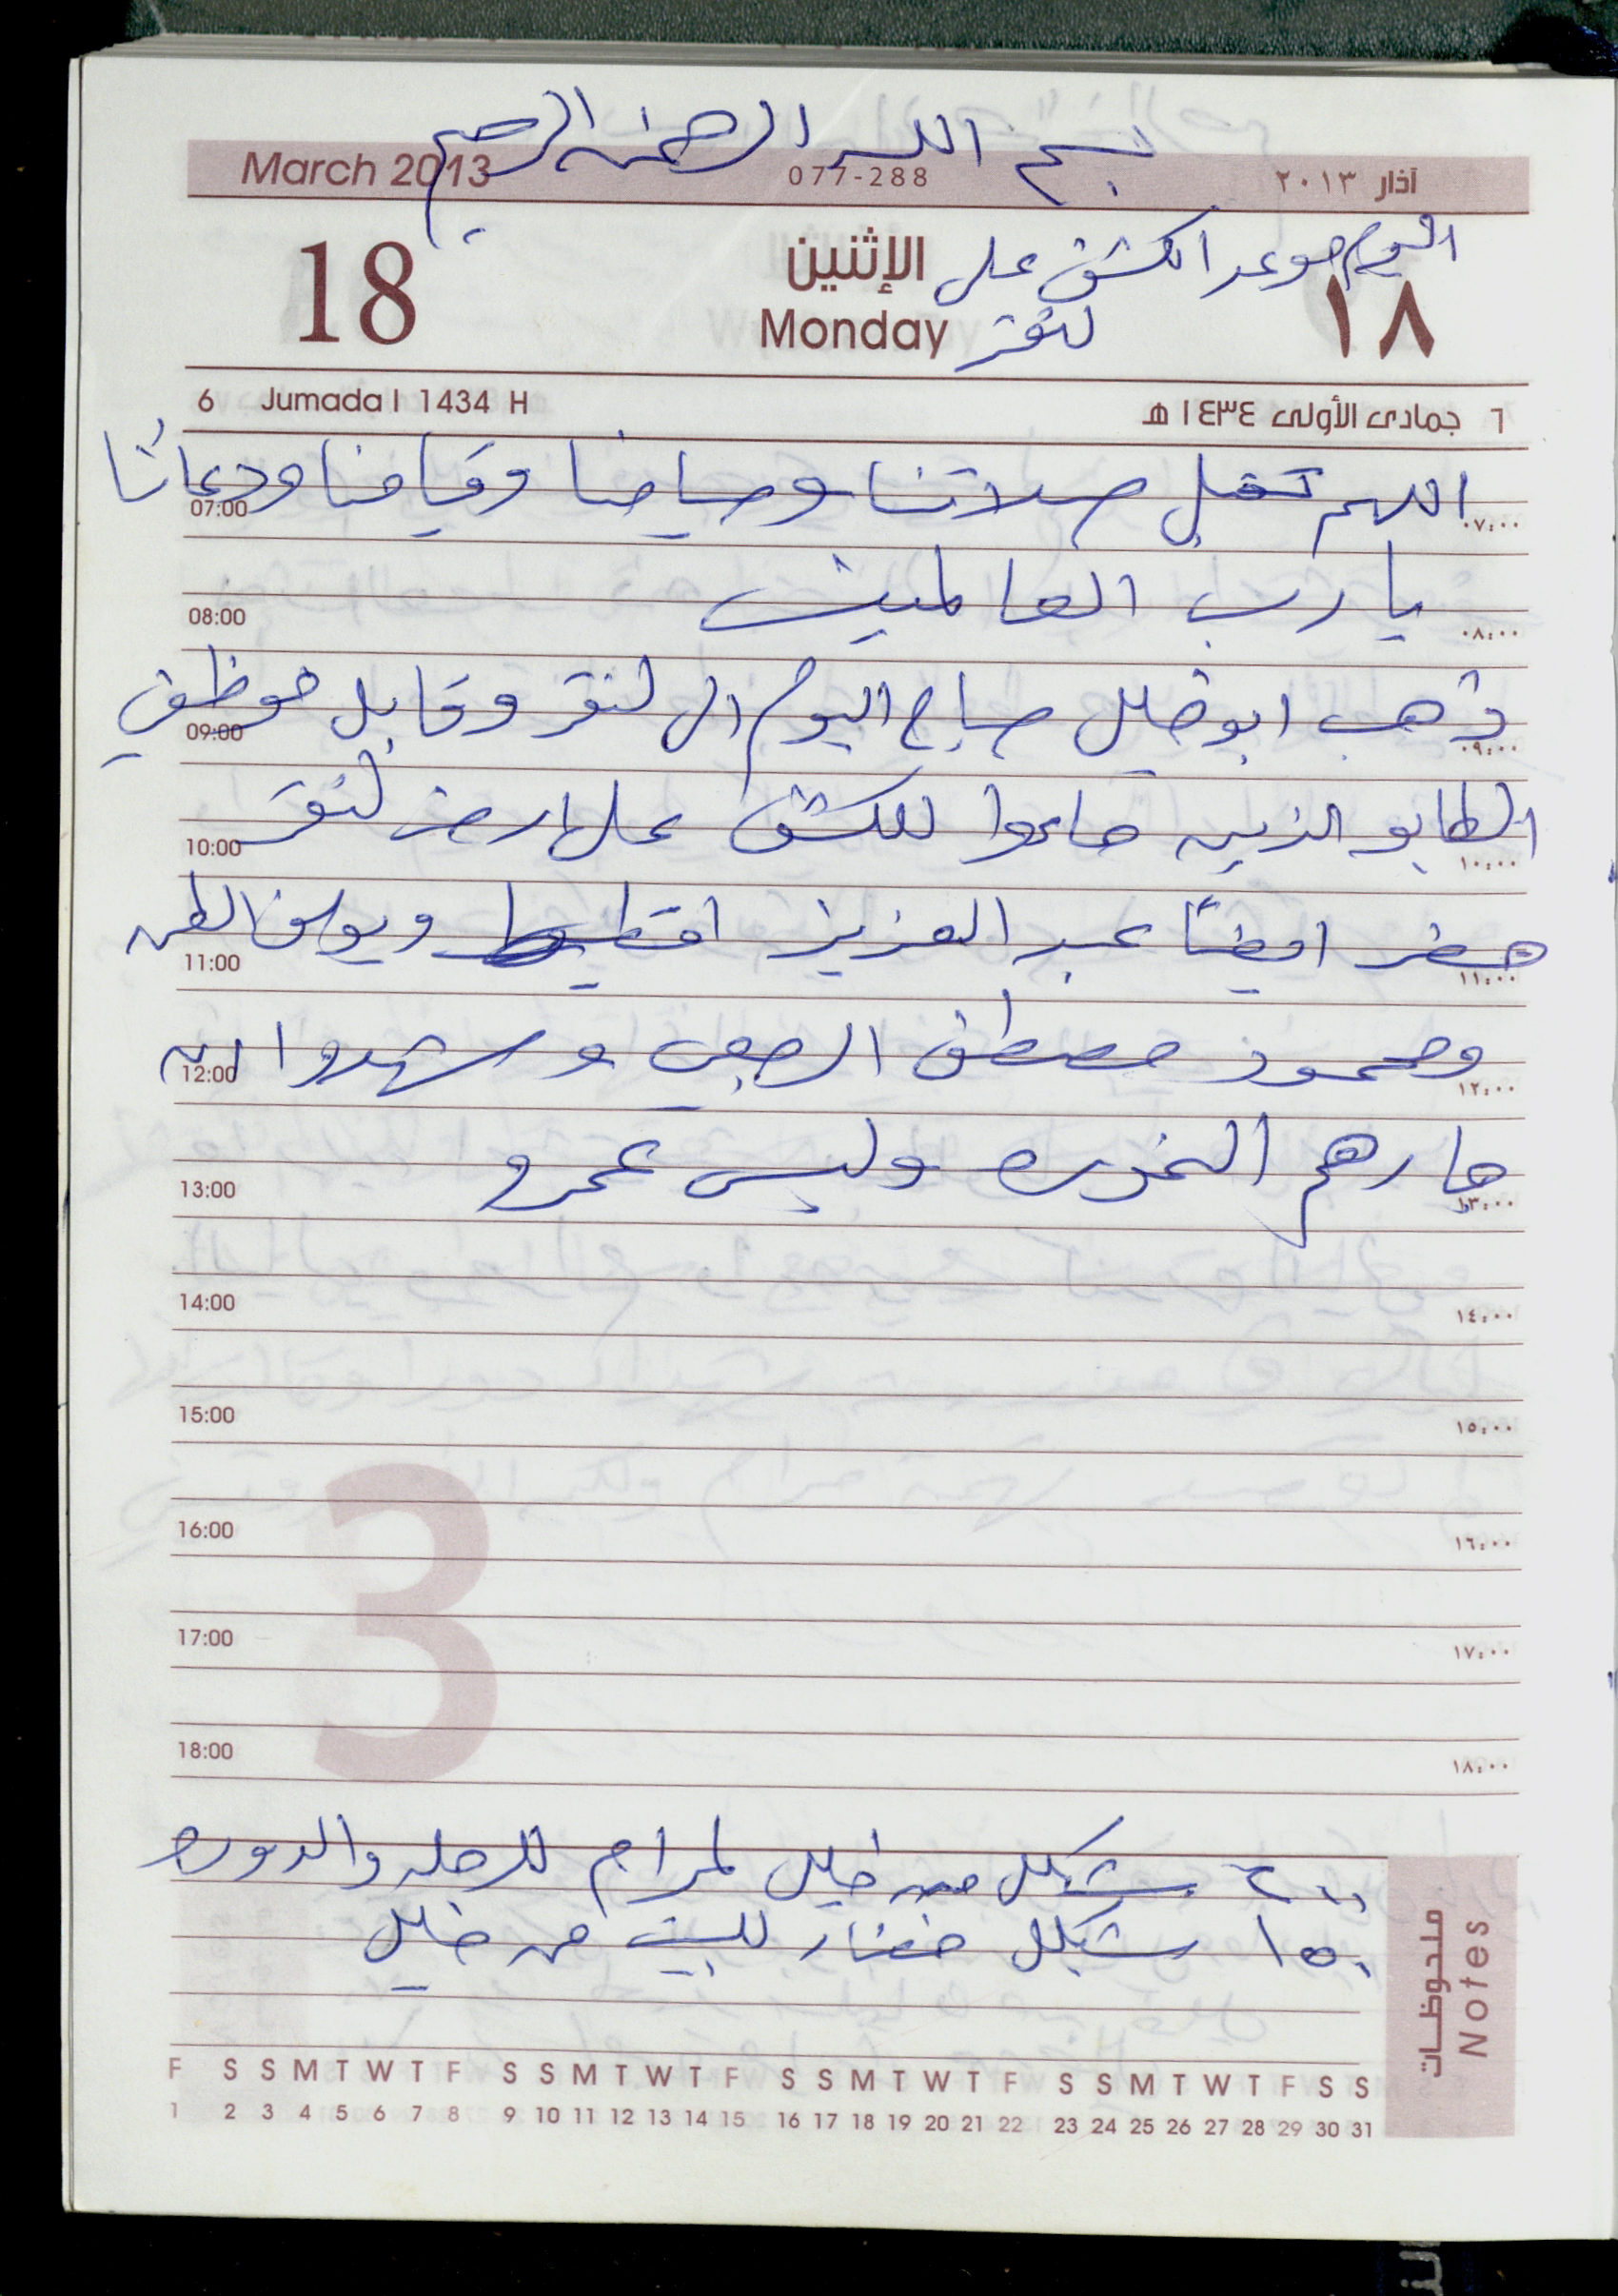 بسم الله الرحمن الرحيم
March 2013 077-288 آذار ٢٠١٣
اليوم موعد الكشف على
18 الإثنين ١٨
Monday لنقر
6 Jumada I 1434 H ٦ جمادى الأولى ١٤٣٤ هـ
اللهم تقبل صلاتنا وصيامنا وقيامنا ودعائنا
07:00 ٠٧:٠٠
يا رب العالمين
08:00 ٠٨:٠٠
ذهب ابو خليل صباح اليوم الى لنقر وقابل موظفي
09:00 ٠٩:٠٠
الطابو الذين جاءوا للكشف على ارض لنقر
10:00 ١٠:٠٠
حضر ايضاً عبد العزيز اقطيط ويوسف
11:00 ١١:٠٠
ومحمود مصطفى الرجعي وشهدوا ان
12:00 ١٢:٠٠
جارهم الخوره وليس عمرو
13:00 ١٣:٠٠
14:00 ١٤:٠٠
15:00 ١٥:٠٠
16:00 ١٦:٠٠
3
17:00 ١٧:٠٠
18:00 ١٨:٠٠
٢٠٠ شيكل من خليل لمرام للرحله والدوره
١٥٠ شيكل خضار للبيت من خليل
ملحوظات
Notes
F S S M T W T F S S M T W T F S S M T W T F S S M T W T F S S
1 2 3 4 5 6 7 8 9 10 11 12 13 14 15 16 17 18 19 20 21 22 23 24 25 26 27 28 29 30 31